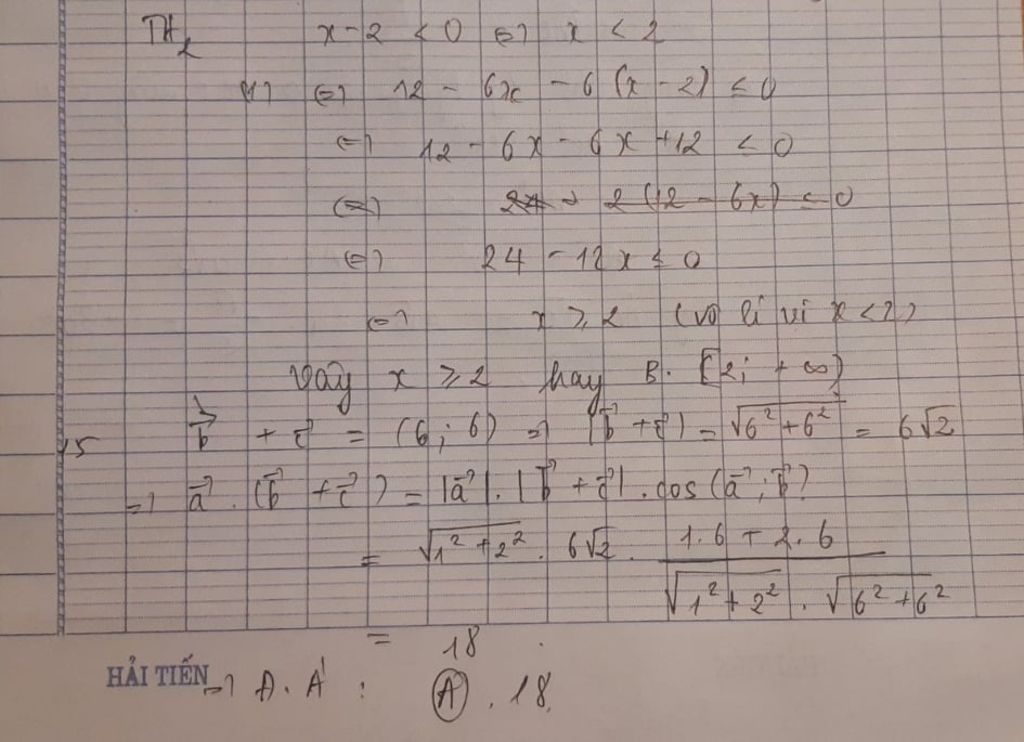 TH2 x-2 < 0 ⇔ x < 2
(1) ⇔ 12 - 6x - 6(x-2) ≤ 0
⇔ 12 - 6x - 6x + 12 ≤ 0
⇔ 24 - 12x ≤ 0
⇔ x ≥ 2 (vô lí vì x < 2)
Vậy x ≥ 2 hay B. [2; +∞)
15 b⃗ + c⃗ = (6; 6) ⇒ |b⃗ + c⃗| = √(6² + 6²) = 6√2
⇒ a⃗ . (b⃗ + c⃗) = |a⃗| . |b⃗ + c⃗| . cos(a⃗; b⃗)
= √(1² + 2²) . 6√2 . (1.6 + 2.6) / (√(1² + 2²) . √(6² + 6²))
= 18 .
HẢI TIẾN ⇒ Đ. Á : A . 18.